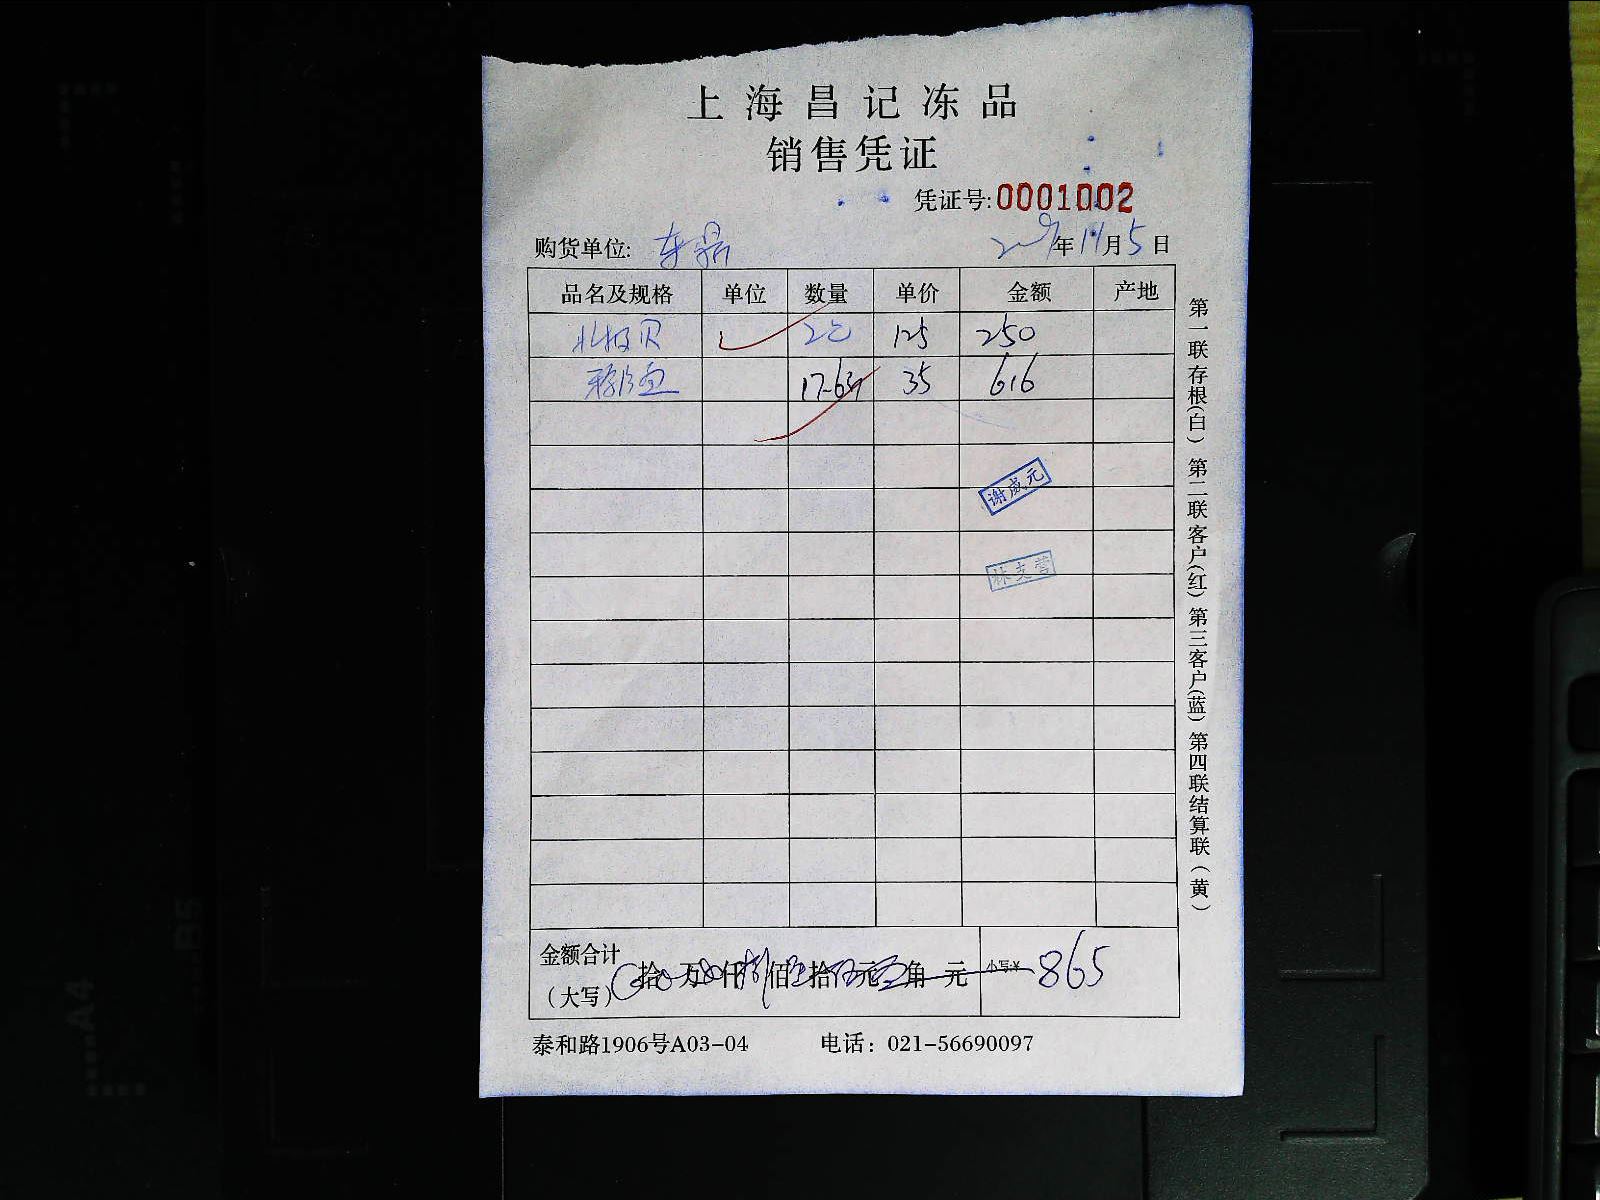 上海昌记冻品
销售凭证
凭证号:0001002
购货单位: 年 月5日
品名及规格 单位 数量 单价 金额 产地
北极贝 2包 125 250
35 616
谢成元
林支营
金额合计
(大写) 拾 万 仟 佰 拾 元 角 元 小写:¥ 865
泰和路1906号A03-04 电话：021-56690097
第一联存根(白) 第二联客户(红) 第三客户(蓝) 第四联结算联(黄)